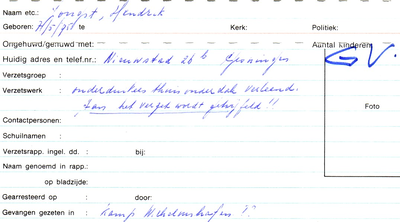 Naam etc.: Jongst, Hendrik
Geboren: 7/5/'75 te Kerk: Politiek:
Ongehuwd/gehuwd met: Aantal kinderen:
Huidig adres en telef.nr.: Nieuwstad 26 b Groningen G.V.
Verzetsgroep :
Verzetswerk : onderduikers thuis onderdak verleend.
aan het verzet wordt getwijfeld"!
Foto
Contactpersonen:
Schuilnaam :
Verzetsrapp. ingel. dd. : bij:
Naam genoemd in rapp.:
op bladzijde:
Gearresteerd op : door:
Gevangen gezeten in : Kamp Wilhelmshafen ?.